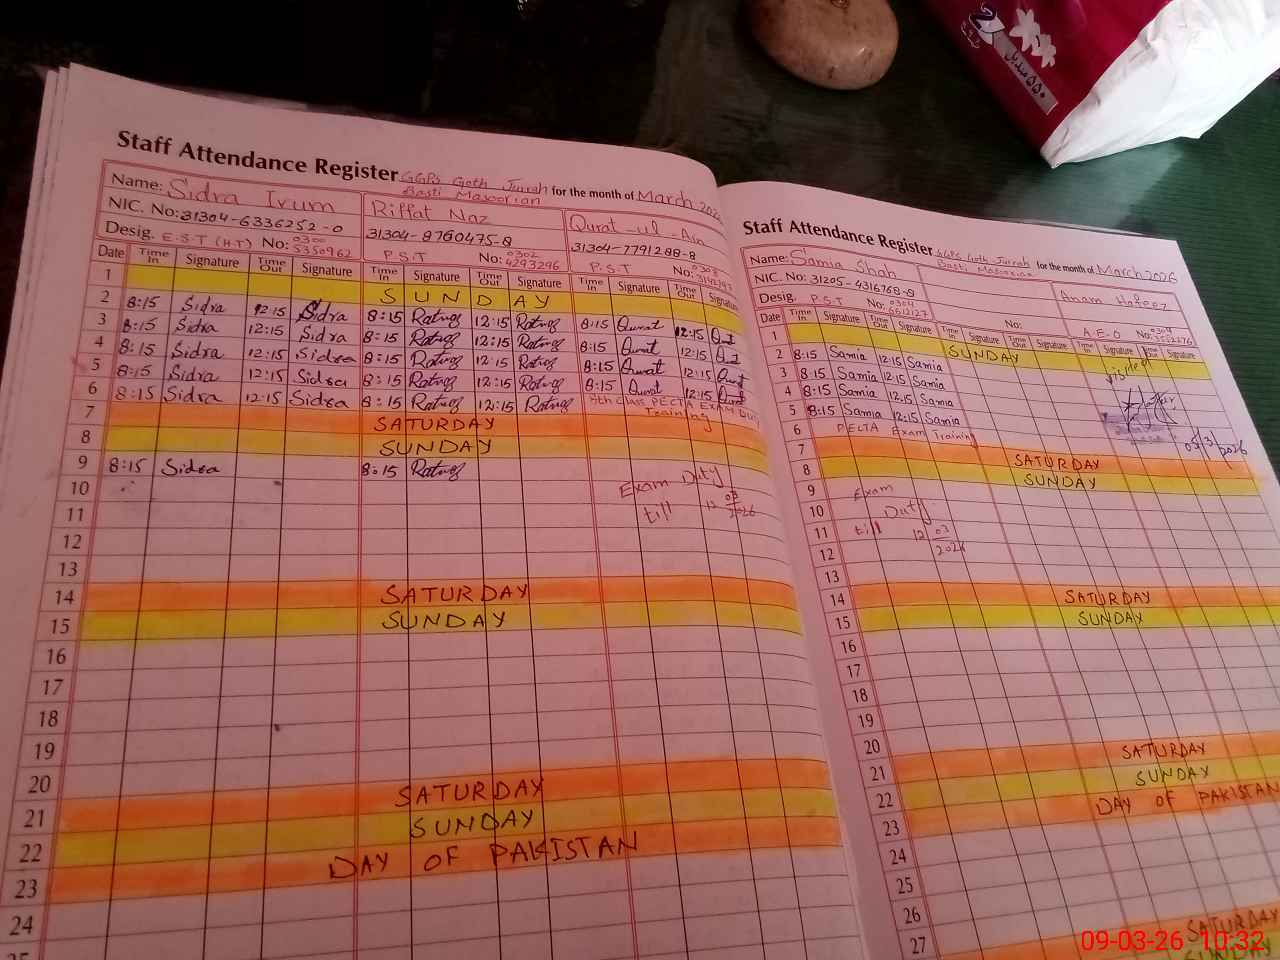 Staff Attendance Register GGPS Goth Jurrah for the month of March-2026
Basti Masoorian
Name: Sidra Irum Riffat Naz Qurat-ul-Ain
NIC. No: 31304-6336252-0 31304-8760475-8 31304-7791288-8
Desig. E.S.T (H.T) No: 0300 5350962 P.S.T No: 0302 4293296 P.S.T No:
Date Time In Signature Time Out Signature Time In Signature Time Out Signature Time In Signature Time Out Signature
1 SUNDAY
2 8:15 Sidra 12:15 Sidra 8:15 12:15 8:15 Qurat 12:15
3 8:15 Sidra 12:15 Sidra 8:15 12:15 8:15 Qurat 12:15
4 8:15 Sidra 12:15 Sidra 8:15 12:15 8:15 Qurat 12:15
5 8:15 Sidra 12:15 Sidra 8:15 12:15 8:15 Qurat 12:15
6 8:15 Sidra 12:15 Sidra 8:15 12:15 8th class PECTA EXAM Duty
Training
7 SATURDAY
8 SUNDAY
9 8:15 Sidra 8:15
10 Exam Duty
11 till 12 03 2026
12
13
14 SATURDAY
15 SUNDAY
16
17
18
19
20
21 SATURDAY
22 SUNDAY
23 DAY OF PAKISTAN
24
25
Staff Attendance Register GGPS Goth Jurrah for the month of March 2026
Basti Masoorian
Name: Samia Shah Anam Hafeez
NIC. No: 31205-4316768-8
Desig. P.S.T No: 0304 6612127 No: A.E.O No: 0304
Date Time In Signature Time Out Signature Time In Signature Time Out Signature Time In Signature Time Out Signature
1 SUNDAY
2 8:15 Samia 12:15 Samia
3 8:15 Samia 12:15 Samia
4 8:15 Samia 12:15 Samia
5 8:15 Samia 12:15 Samia
6 PECTA Exam Training
05/3/2026
7 SATURDAY
8 SUNDAY
9 Exam
10 Duty
11 till 12 03
12 2026
13
14 SATURDAY
15 SUNDAY
16
17
18
19
20
21 SATURDAY
22 SUNDAY
23 DAY OF PAKISTAN
24
25
26
27 SATURDAY
SUNDAY
2
۵۵۰ منديل
09-03-26 10:32